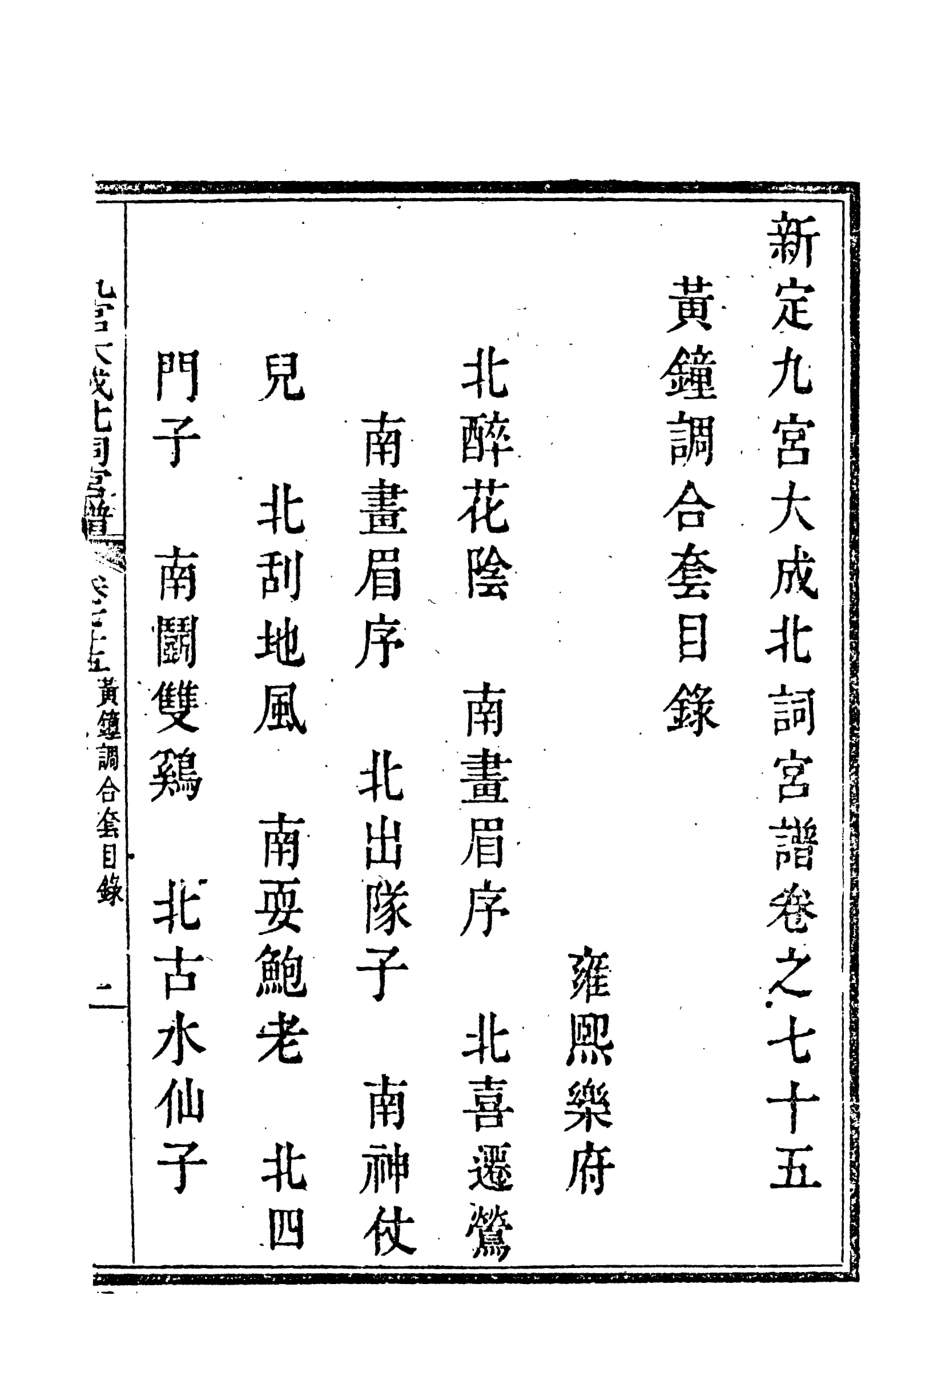 新定九宮大成北詞宮譜卷之七十五
黃鐘調合套目錄
雍熙樂府
北醉花陰　南畫眉序　北喜遷鶯
南畫眉序　北出隊子　南神仗
兒　北刮地風　南耍鮑老　北四
門子　南鬭雙鷄　北古水仙子
九宮大成北詞宮譜　卷之七十五　黃鐘調合套目錄　二